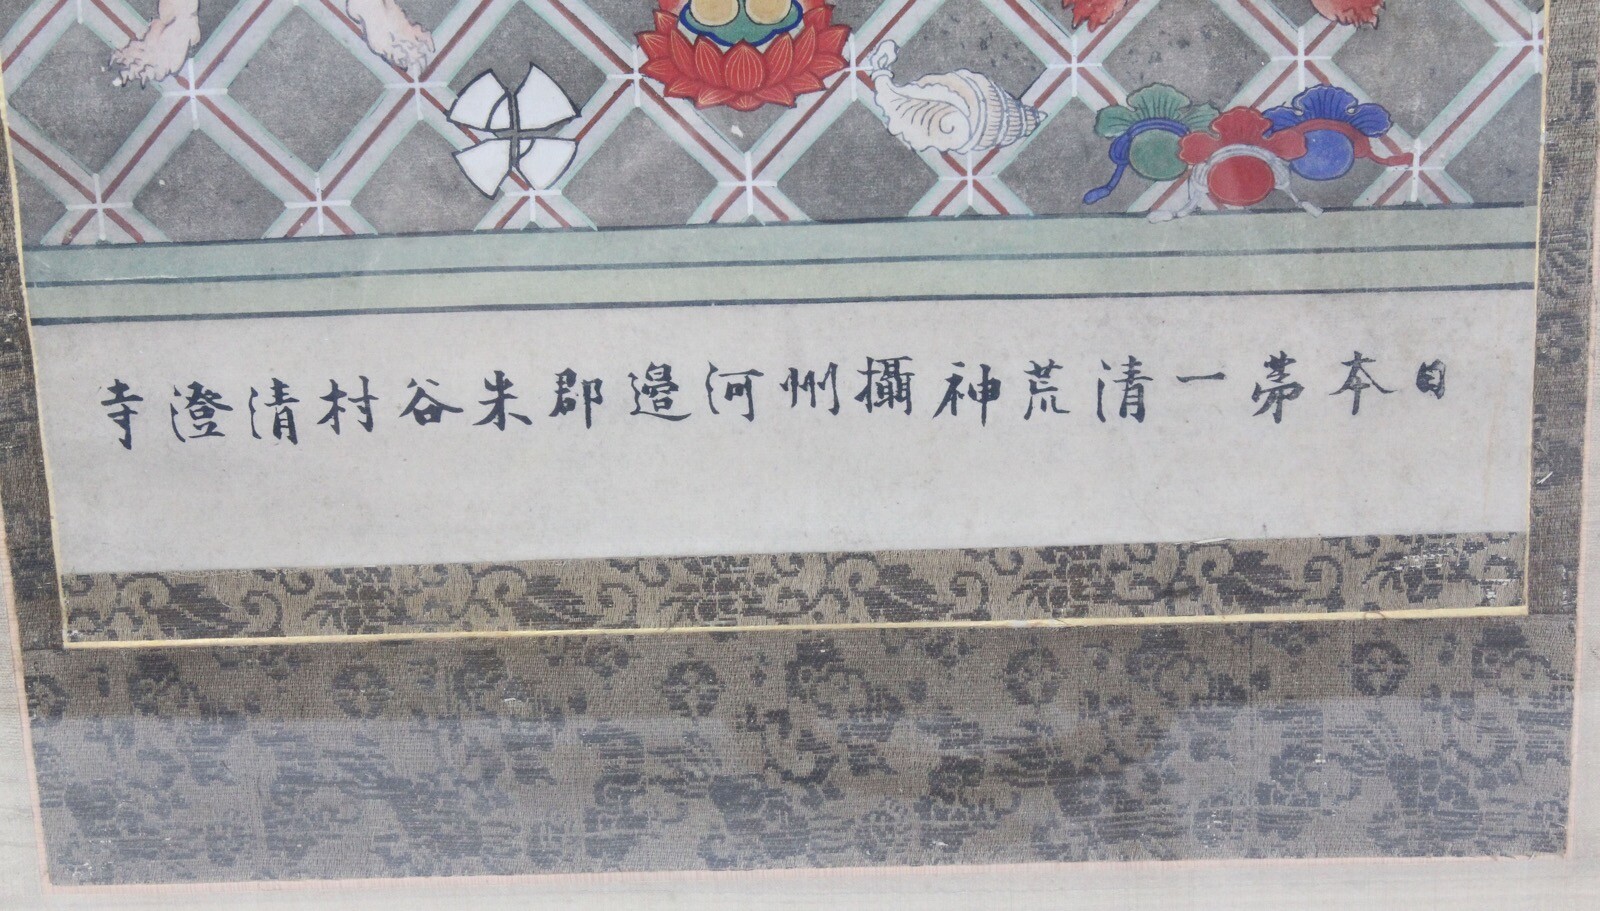 日本第一清荒神攝州河邊郡米谷村清澄寺